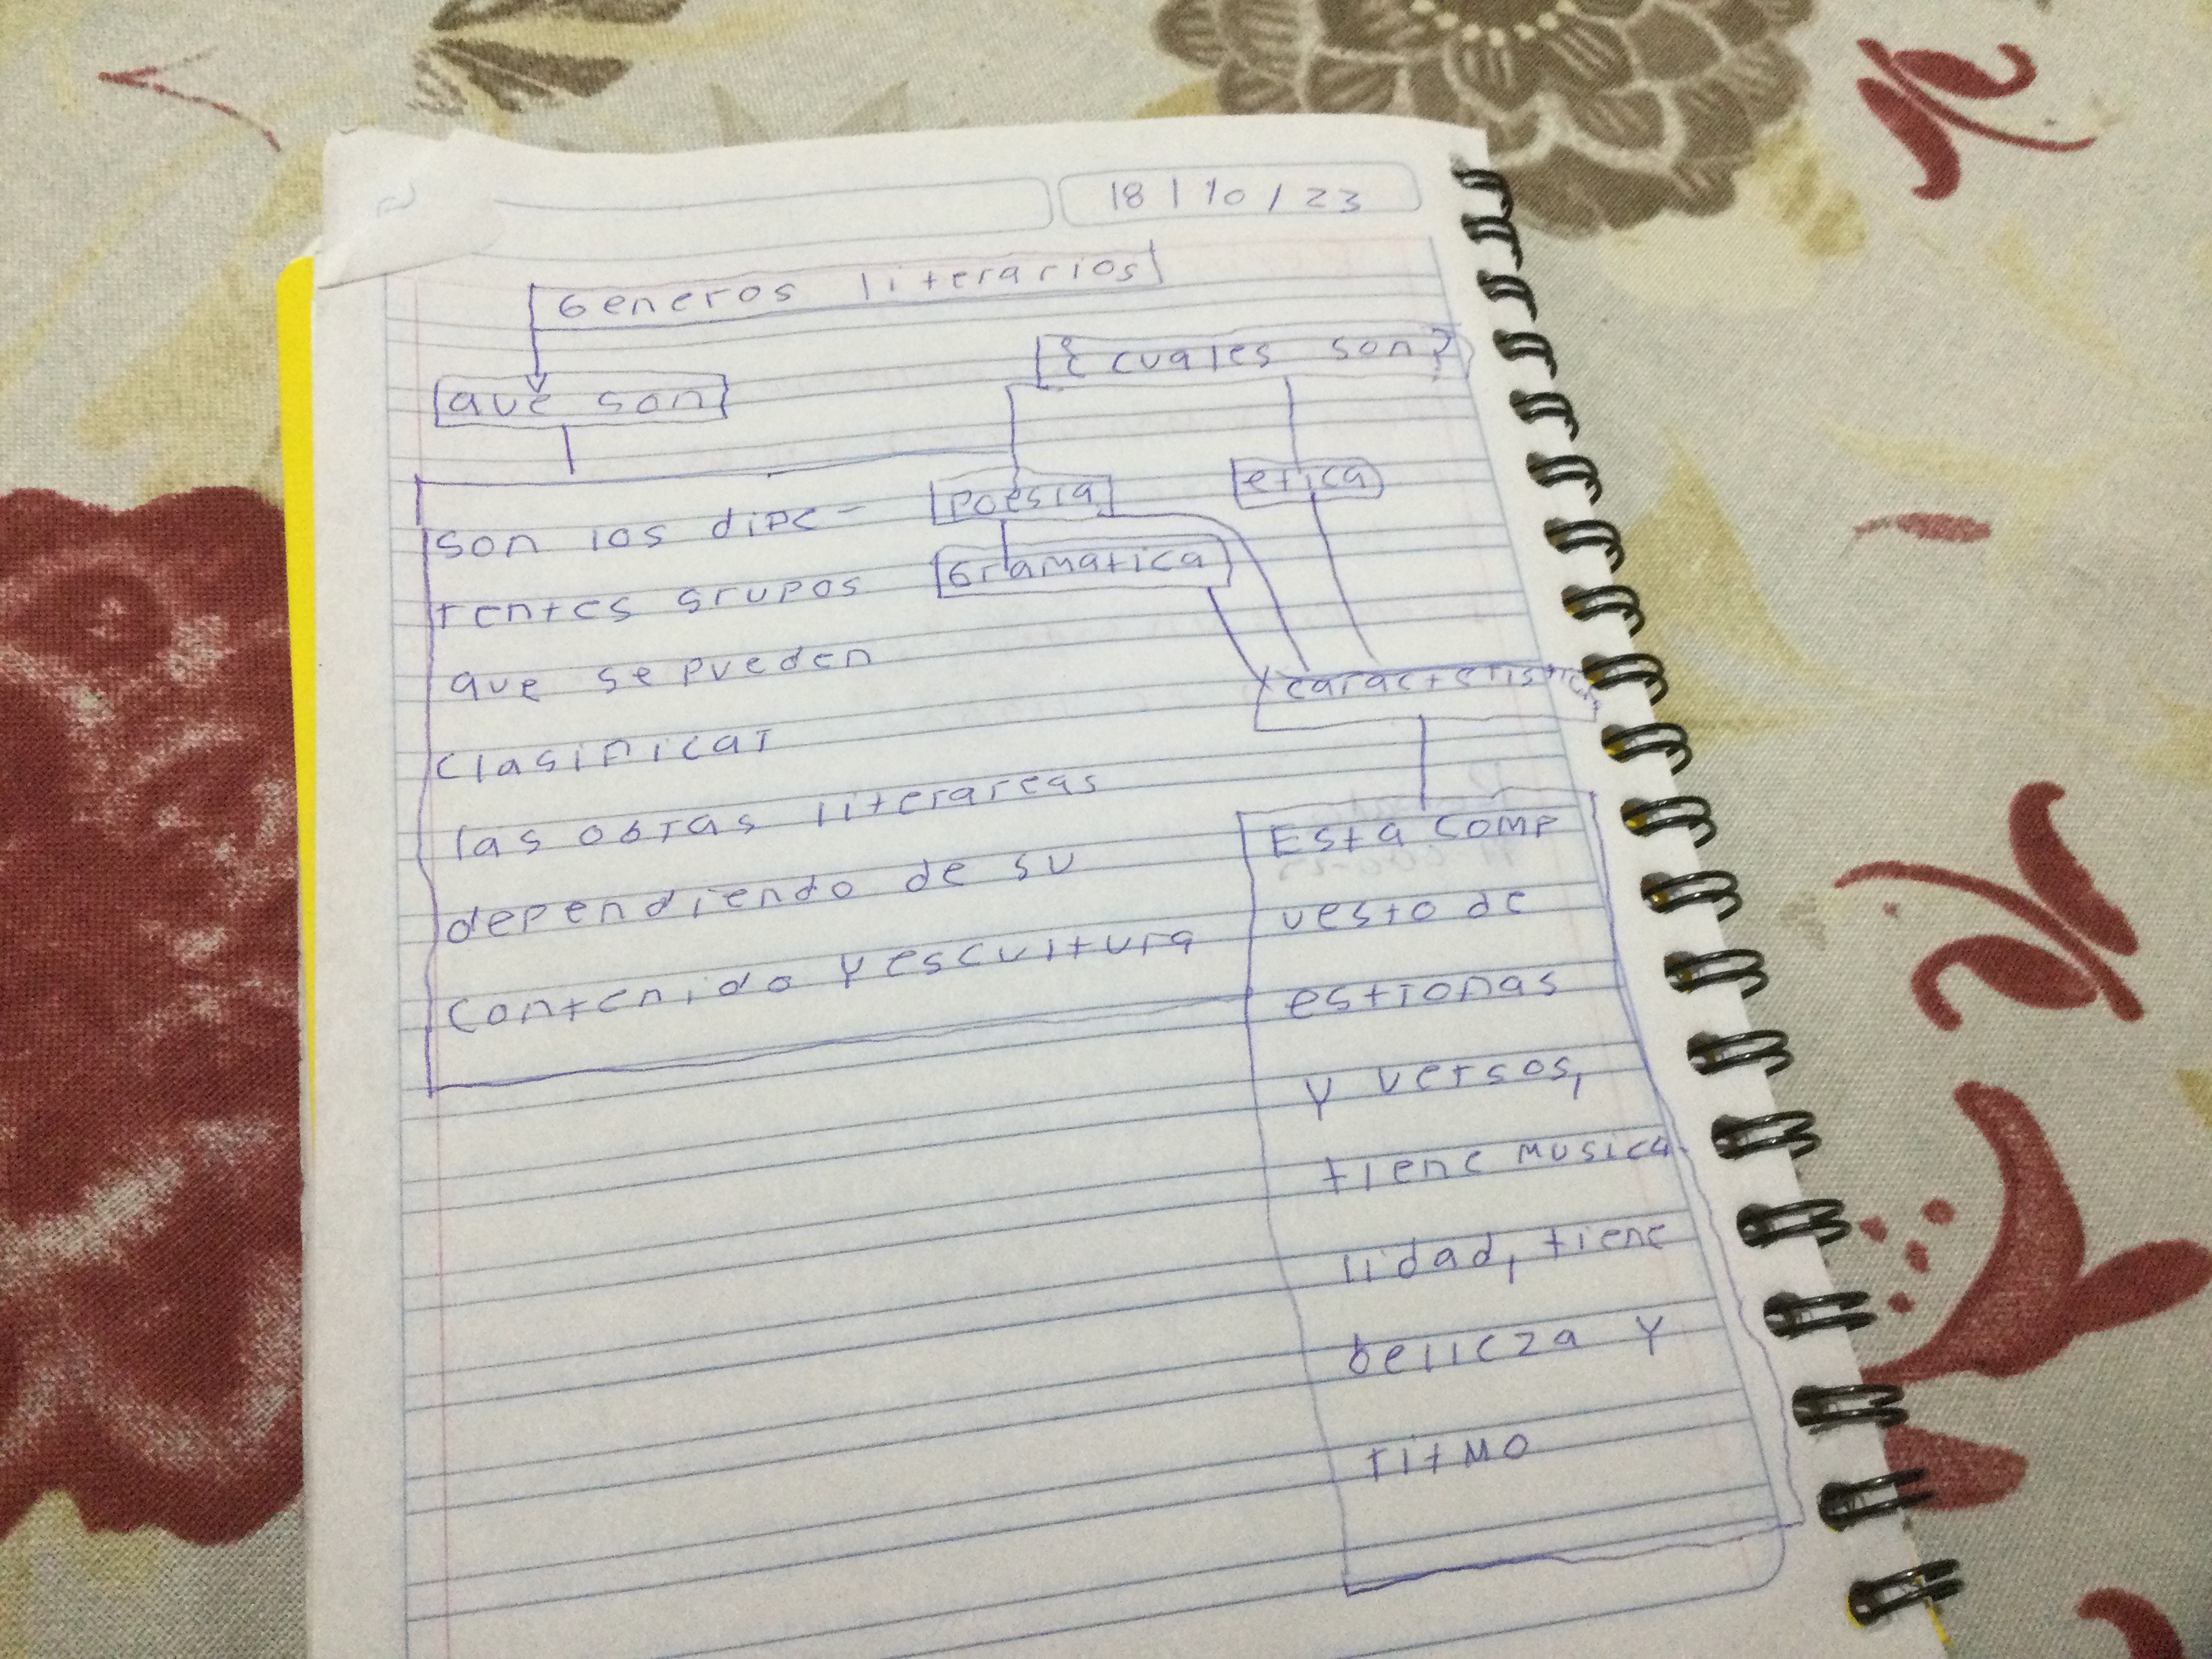 18 / 10 / 23
Generos literarios
¿cuales son?
que son
poesia
etica
son los dife-
Gramatica
rentes grupos
que se pueden
caracteristica
clasificar
las obras literareas
Esta comp
dependiendo de su
uesto de
contenido y escuitura
estrofas
y versos,
tiene musica
lidad, tiene
belleza y
ritmo